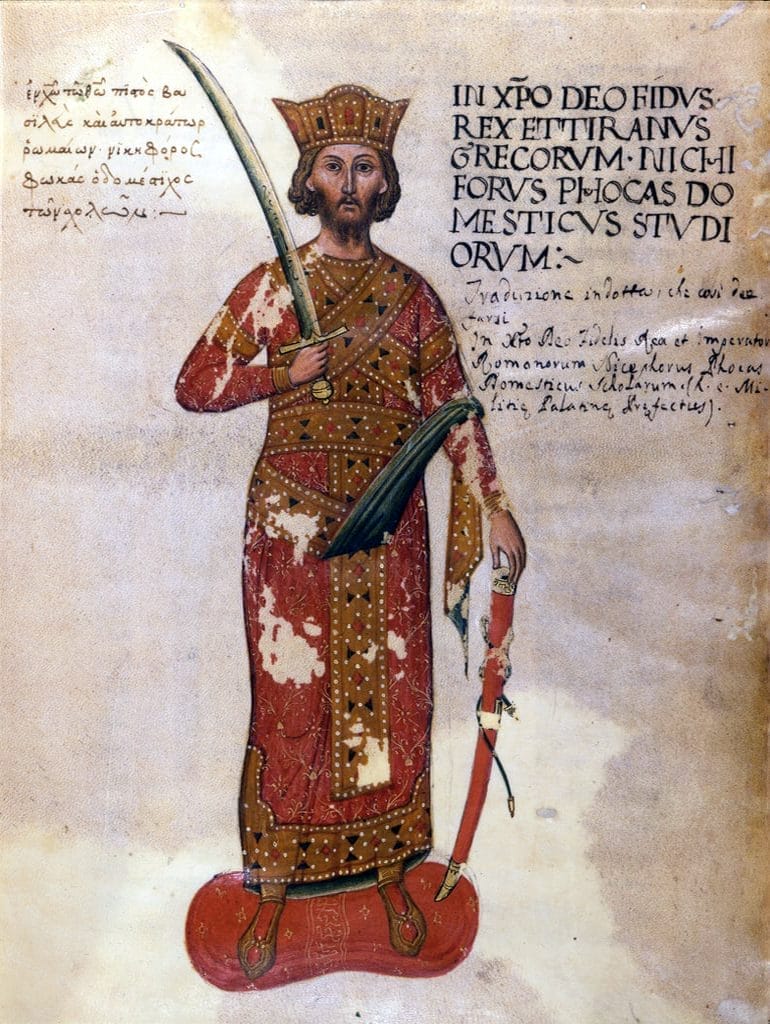 ἐν χῶ τῶ θῶ πιστὸς βα
σιλεὺς καὶ αὐτοκράτωρ
ῥωμαίων · νικηφόρος
φωκάς ὁ δομέστιχος
τῶν σχολῶν : ~
IN XP̄O DEO FIDVS
REX ET TIRANVS
GRECORVM · NICHI
FORVS PHOCAS DO
MESTICVS STVDI
ORVM:~
Traduzione indotta, che così dee
farsi
In Xto Deo Fidelis Rex et Imperator
Romanorum Nicephorus Phocas
Domesticus Scholarum (h. e. Mi-
litię Palatinę Pręfectus).